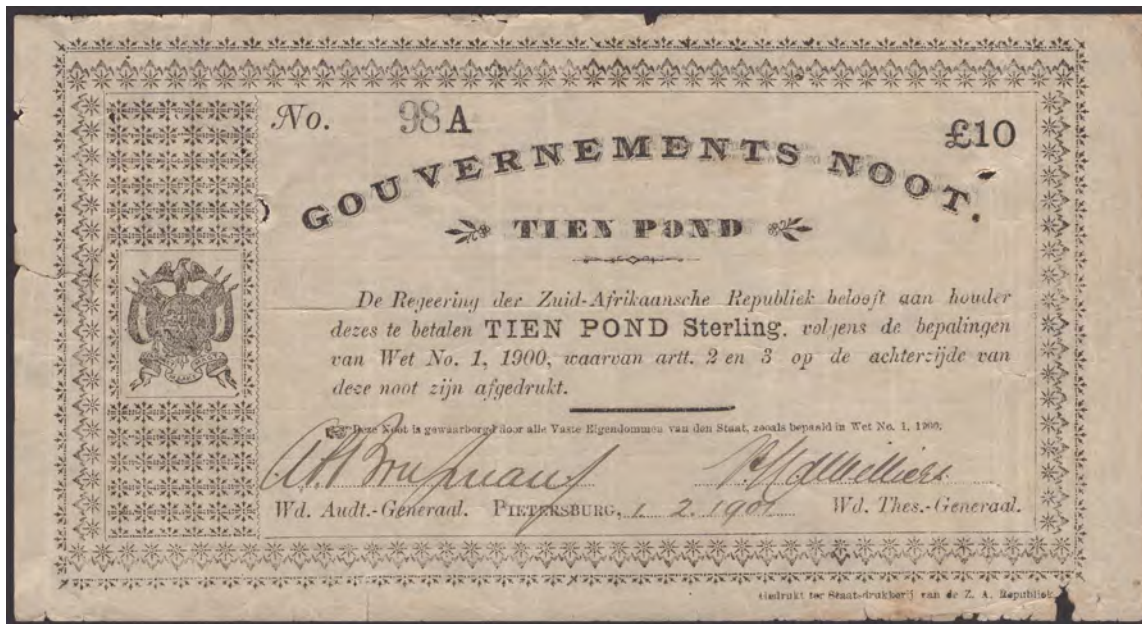 No. 98 A £10
GOUVERNEMENTS NOOT.
TIEN POND
De Regeering der Zuid-Afrikaansche Republiek belooft aan houder
dezes te betalen TIEN POND Sterling. volgens de bepalingen
van Wet No. 1, 1900, waarvan artt. 2 en 3 op de achterzijde van
deze noot zijn afgedrukt.
Deze Noot is gewaarborgd door alle Vaste Eigendommen van den Staat, zooals bepaald in Wet No. 1, 1900.
Wd. Audt.-Generaal. PIETERSBURG, 1. 2. 1901 Wd. Thes.-Generaal.
Gedrukt ter Staats-drukkerij van de Z. A. Republiek.